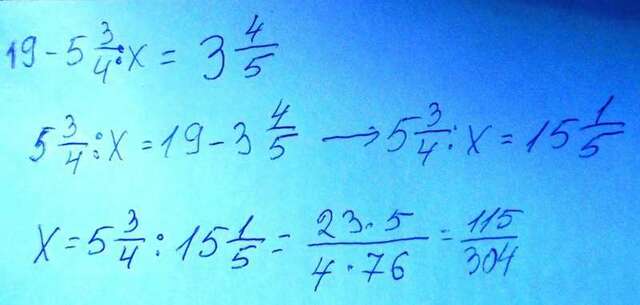 19 - 5 3/4 : x = 3 4/5
5 3/4 : x = 19 - 3 4/5 → 5 3/4 : x = 15 1/5
x = 5 3/4 : 15 1/5 = 23·5/4·76 = 115/304